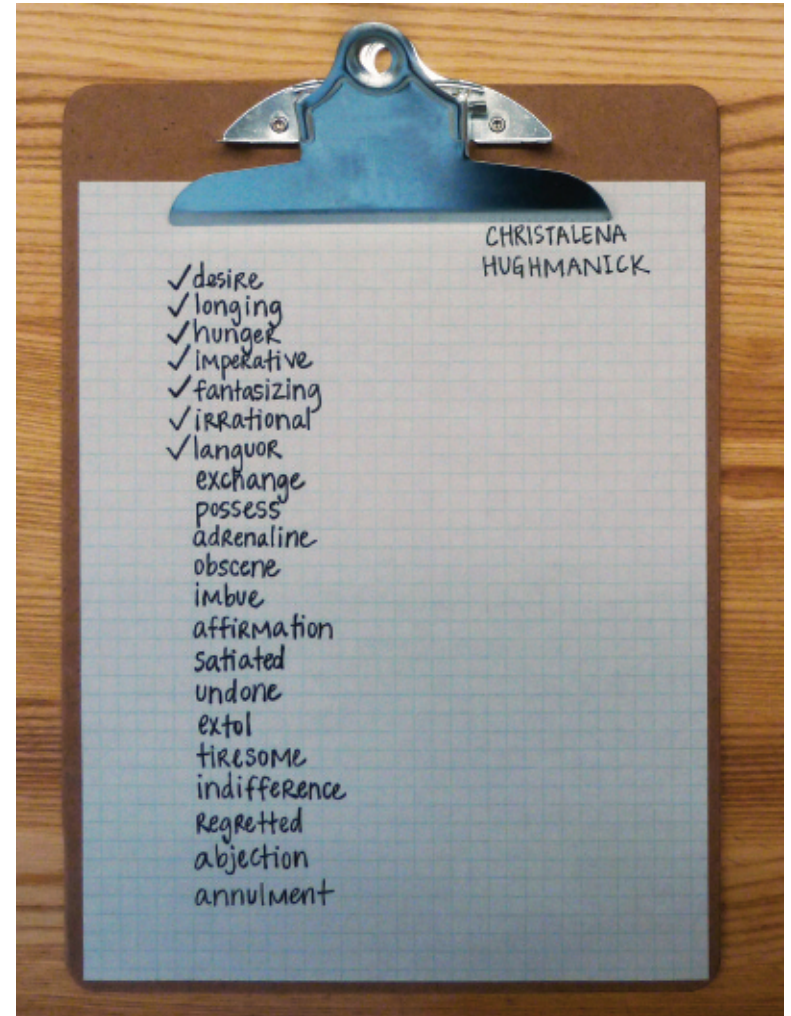 CHRISTALENA
HUGHMANICK
✓ desire
✓ longing
✓ hunger
✓ imperative
✓ fantasizing
✓ irrational
✓ languor
exchange
possess
adrenaline
obscene
imbue
affirmation
satiated
undone
extol
tiresome
indifference
regretted
abjection
annulment